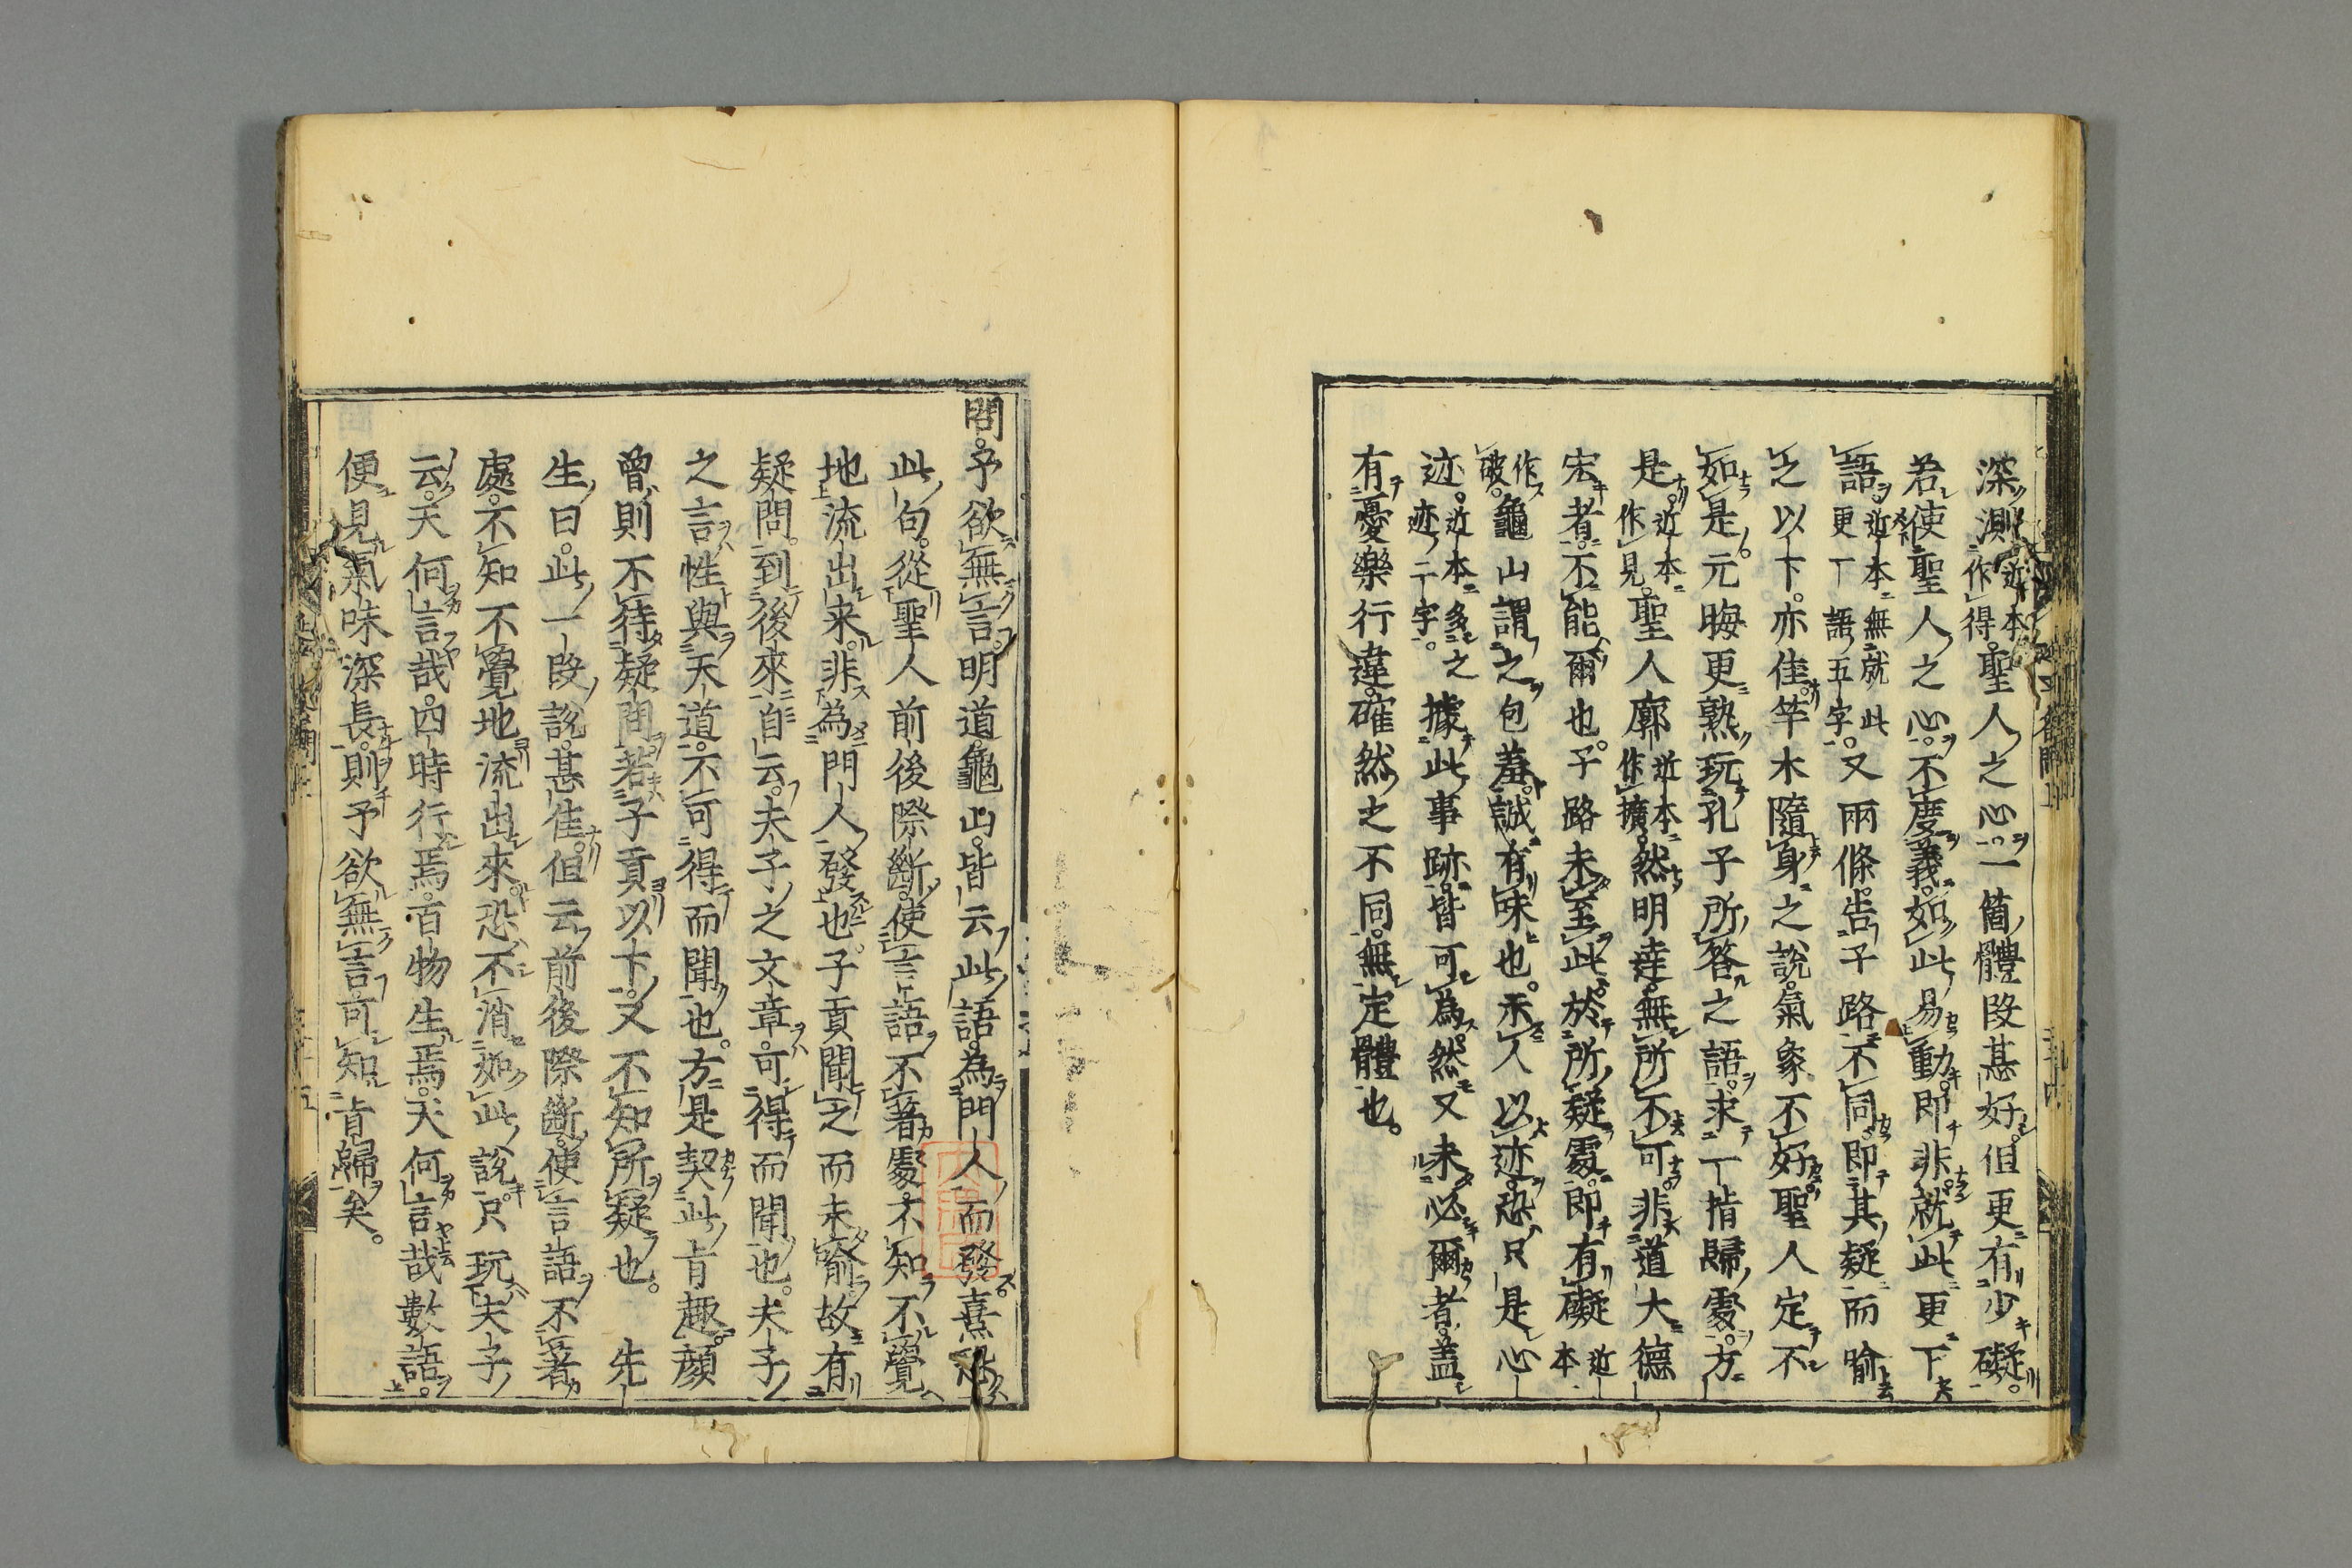 深測近本作得聖人之心。一箇體段甚好。但更有少礙。
若使聖人之心。不度義。如此易動。即非就此更下
語。近本無就此更下語五字。又兩條。告子路不同。即其疑而喻
之以下。亦佳。竿木隨身之說。氣象不好。聖人定不
如是。元晦更熟玩孔子所答之語。求一指歸處。方
是。近本作見。聖人廓近本作擴。然明達。無所不可。非道大德
宏者。不能爾也。子路未至此。於所疑處。即有礙近本
作破。龜山謂之包羞。誠有味也。示人以迹。恐只是心
迹。近本多之迹二字。據此事跡。皆可為然。又未必爾者。蓋
有憂樂行違。確然之不同。無定體也。
問。予欲無言。明道龜山。皆云此語為門人而發。熹恐
此句。從聖人前後際斷。使言語不著處。不知不覺
地流出来。非為門人發也。子貢聞之而未喻。故有
疑問。到後來自云。夫子之文章。可得而聞也。夫子
之言性與天道。不可得而聞也。方是契此肯趣。顏
曾則不待疑問。若子貢以下。又不知所疑也。 先
生曰。此一段說甚佳。但云前後際斷。使言語不著
處。不知不覺地流出來。恐不消如此說。只玩夫子
云。天何言哉。四時行焉。百物生焉。天何言哉數語。
便見氣味深長。則予欲無言。可知肯歸矣。